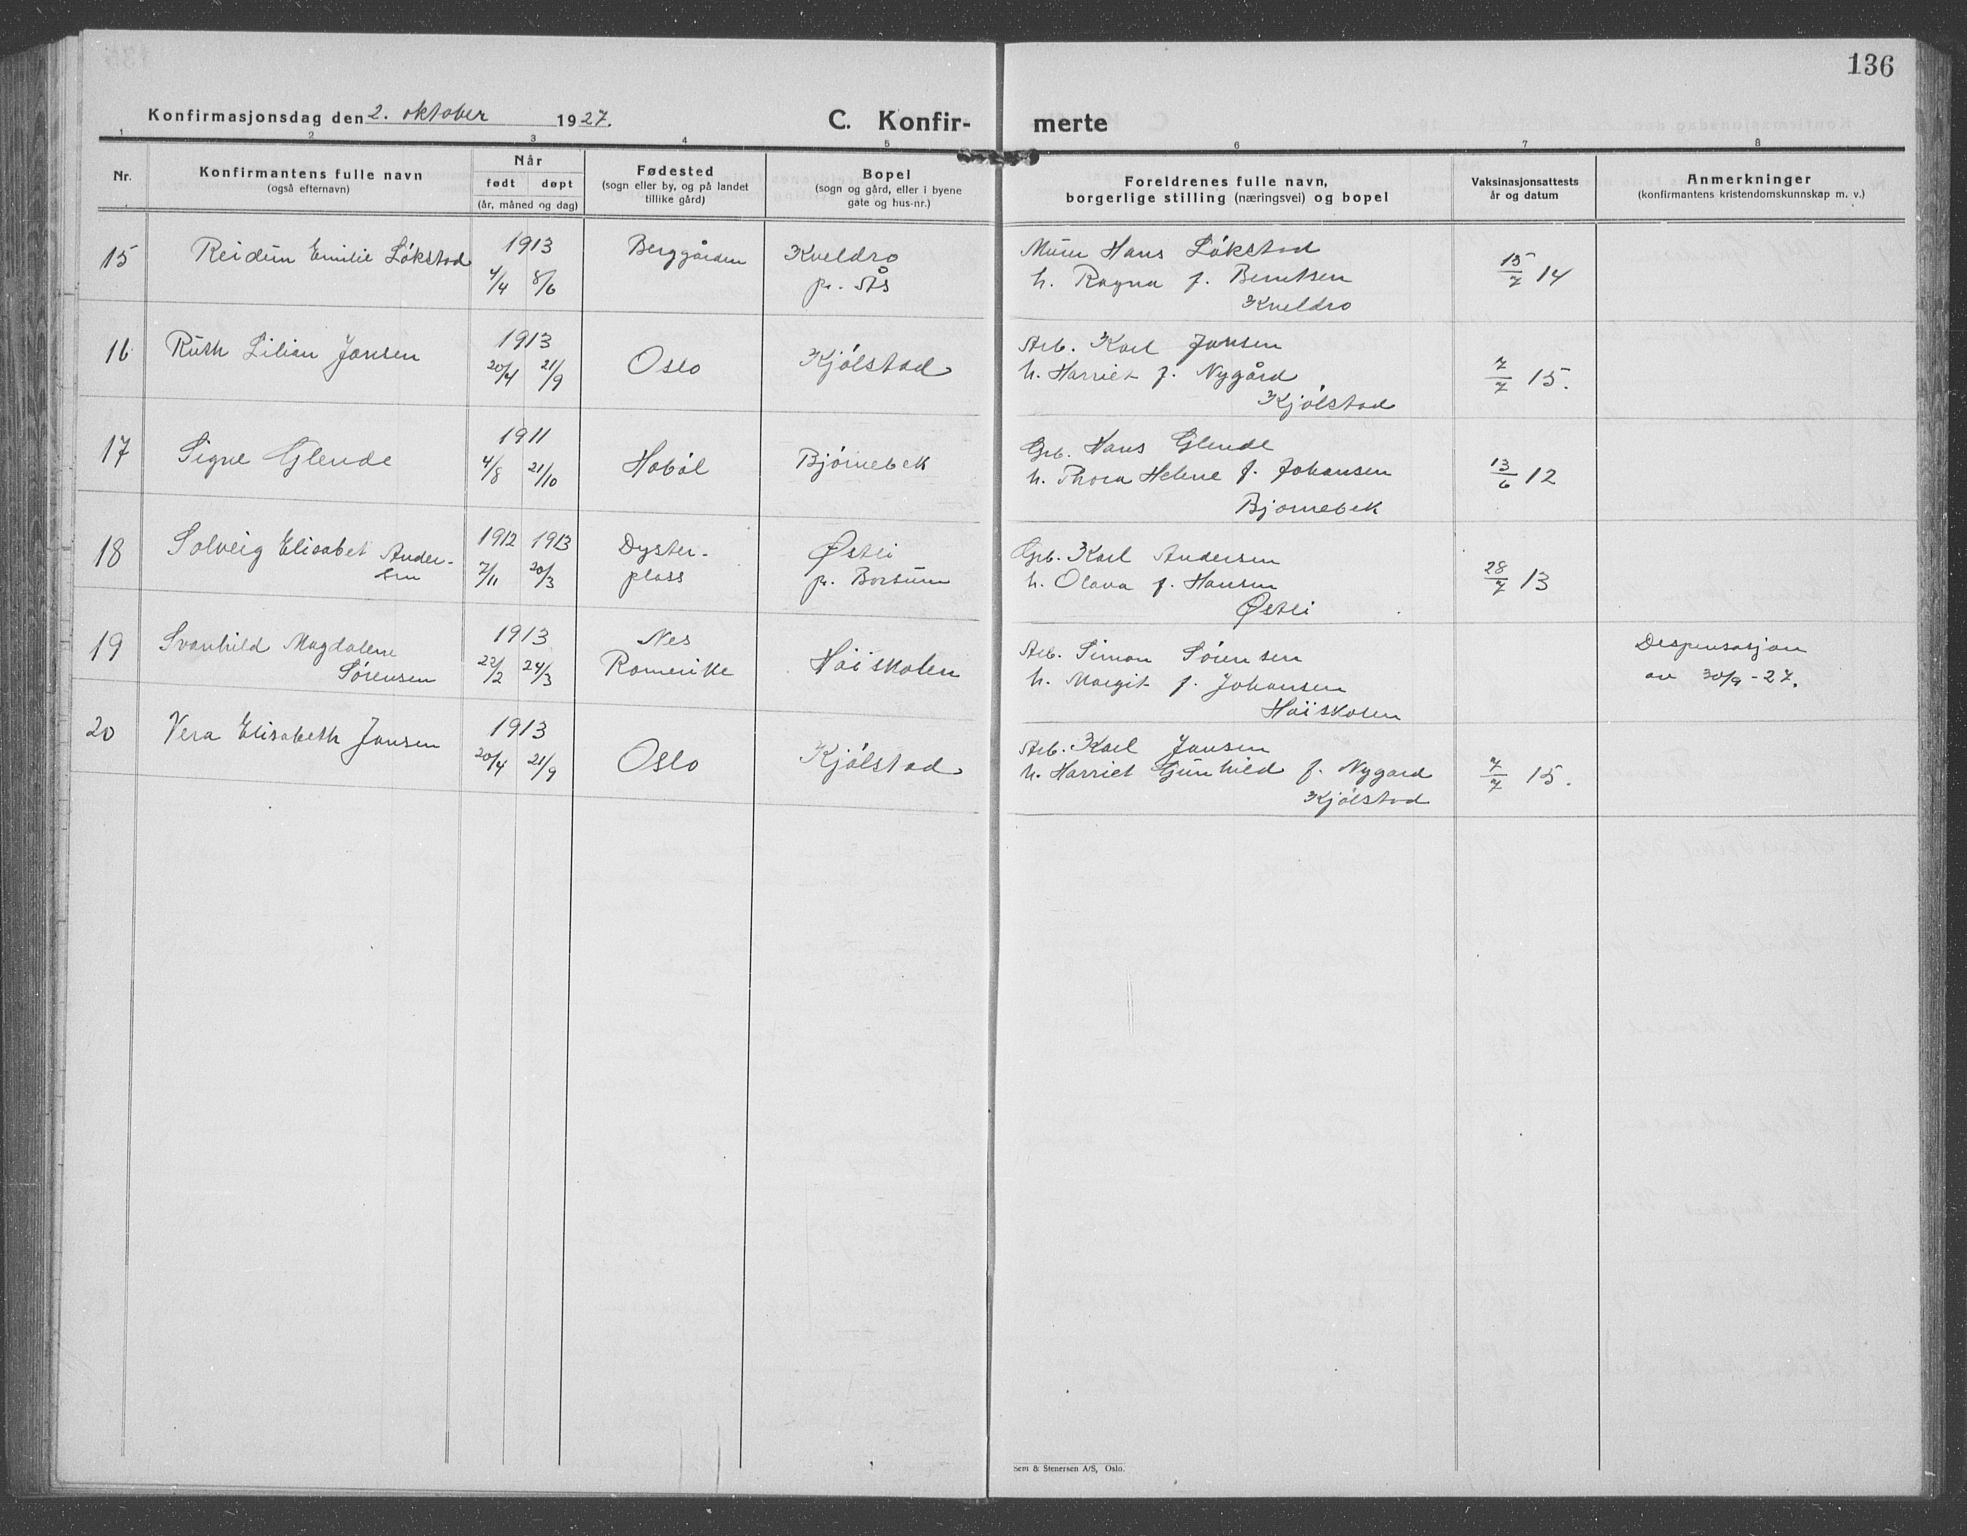 136
Konfirmasjonsdag den 2. oktober 1927.
C. Konfir-
merte
1 2 3 4 5 6 7 8
Nr.
Konfirmantens fulle navn
(også efternavn)
Når
født døpt
(år, måned og dag)
Fødested
(sogn eller by, og på landet
tillike gård)
Bopel
(sogn og gård, eller i byene
gate og hus-nr.)
Foreldrenes fulle navn,
borgerlige stilling (næringsvei) og bopel
Vaksinasjonsattests
år og datum
Anmerkninger
(konfirmantens kristendomskunnskap m. v.)
15 Reidun Emilie Løkstad 1913 4/4 8/6 Berggården Kveldro
pr. Ås
Murer Hans Løkstad 15/7 14
h. Ragna f. Berntsen
Kveldro
16 Ruth Lilian Jansen 1913 20/4 21/9 Oslo Kjølstad
Arb. Karl Jansen 7/7 15.
h. Harriet f. Nygård
Kjølstad
17 Signe Glende 1911 4/8 21/10 Hobøl Bjørnebek
Grb. Hans Glende 13/6 12
h. Thora Helene f. Johansen
Bjørnebek
18 Solveig Elisabet Ander-
sen
1912 1913
7/11 20/3
Dyster-
plass
Østli
pr. Borsum
Grb. Karl Andersen 28/7 13
h. Olava f. Hansen
Østli
19 Svanhild Magdalene
Sørensen
1913
22/2 24/3
Nes
Romerike
Høiskolen
Arb. Simon Sørensen
h. Margit f. Johansen
Høiskolen
Despensasjon
av 30/9-27.
20 Vera Elisabeth Jansen 1913 20/4 21/9 Oslo Kjølstad
Arb. Karl Jansen 7/7 15.
h. Harriet Gunhild f. Nygard
Kjølstad
Sem & Stenersen A/S, Oslo.